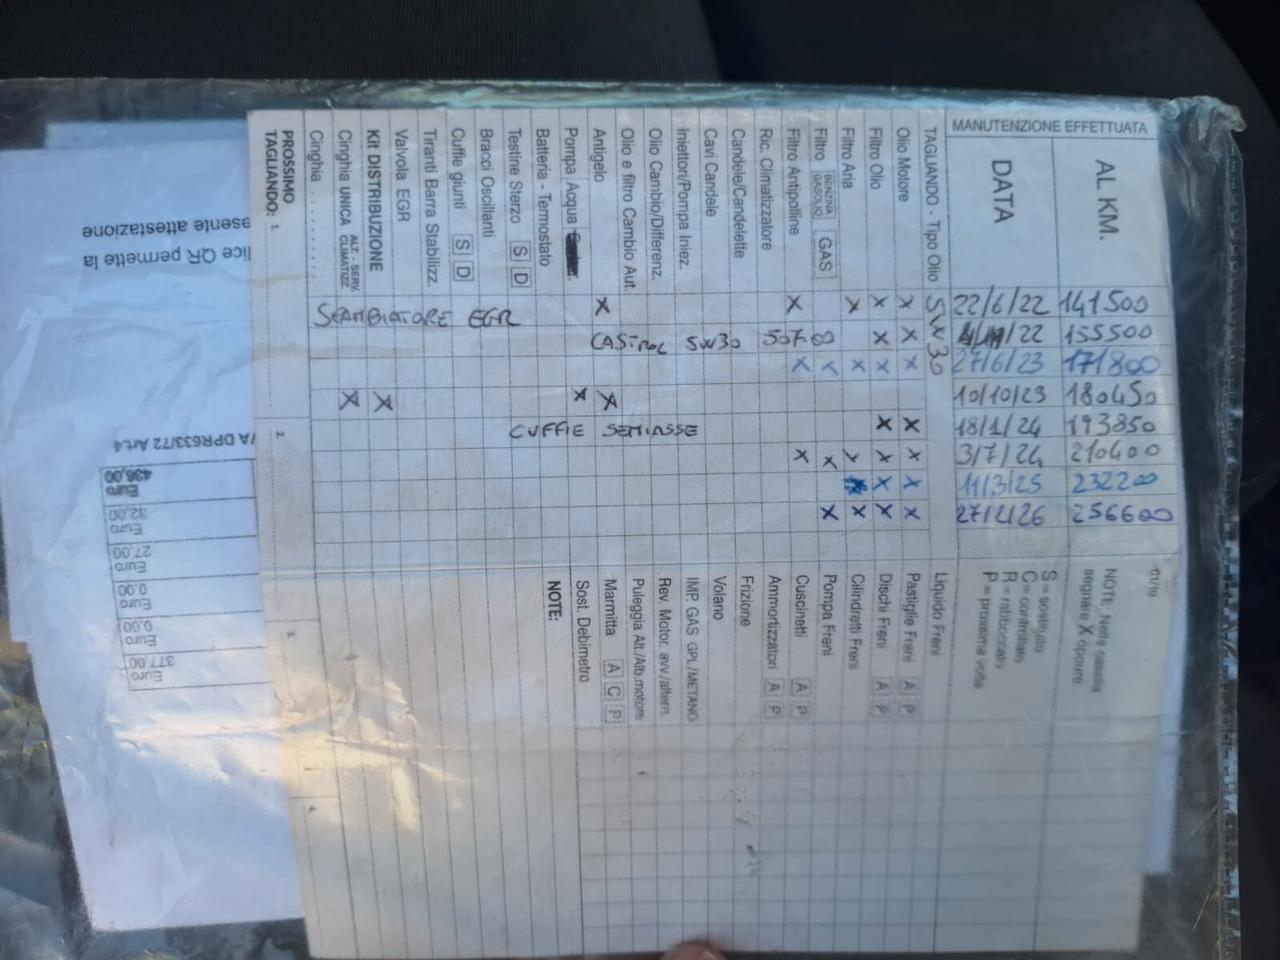 MANUTENZIONE EFFETTUATA
AL KM.
DATA
141500
155500
171800
180450
193850
210400
232200
256600
22/6/22
/22
27/6/23
10/10/23
18/1/24
3/7/24
11/3/25
27/2/26
TAGLIANDO - Tipo Olio 5W30
Olio Motore X X X X X X X
Filtro Olio X X X X X X X
Filtro Aria X X X X
Filtro BENZINA GASOLIO GAS X X X
Filtro Antipolline X X X
Ric. Climatizzatore
Candele/Candelette
Cavi Candele
Iniettori/Pompa Iniez.
Olio Cambio/Differenz.
Olio e filtro Cambio Aut.
Antigelo X X
Pompa Acqua X
Batteria - Termostato
Testine Sterzo S D
Bracci Oscillanti
Cuffie giunti S D
Tiranti Barra Stabilizz.
Valvola EGR
Kit DISTRIBUZIONE X
Cinghia UNICA ALT. - SERV. CLIMATIZZ. X
Cinghia . . . . . . . .
PROSSIMO
TAGLIANDO:
1.
2.
SCAMBIATORE EGR
CASTROL 5W30 507 00
CUFFIE SEMIASSE
01/19
NOTE: Nella casella
segnare X oppure
S = sostituito
C = controllato
R = rabboccato
P = prossima volta
Liquido Freni
Pastiglie Freni A P
Dischi Freni A P
Cilindretti Freni
Pompa Freni
Cuscinetti A P
Ammortizzatori A P
Frizione
Volano
IMP. GAS GPL/METANO
Rev. Motor. avv./altern.
Puleggia Alt./Alb.motore
Marmitta A C P
Sost. Debimetro
NOTE:
dice QR permette la
esente attestazione
VA DPR633/72 Art.4
Euro
436,00
Euro
32,00
Euro
27,00
Euro
0,00
Euro
0,00
Euro
377,00